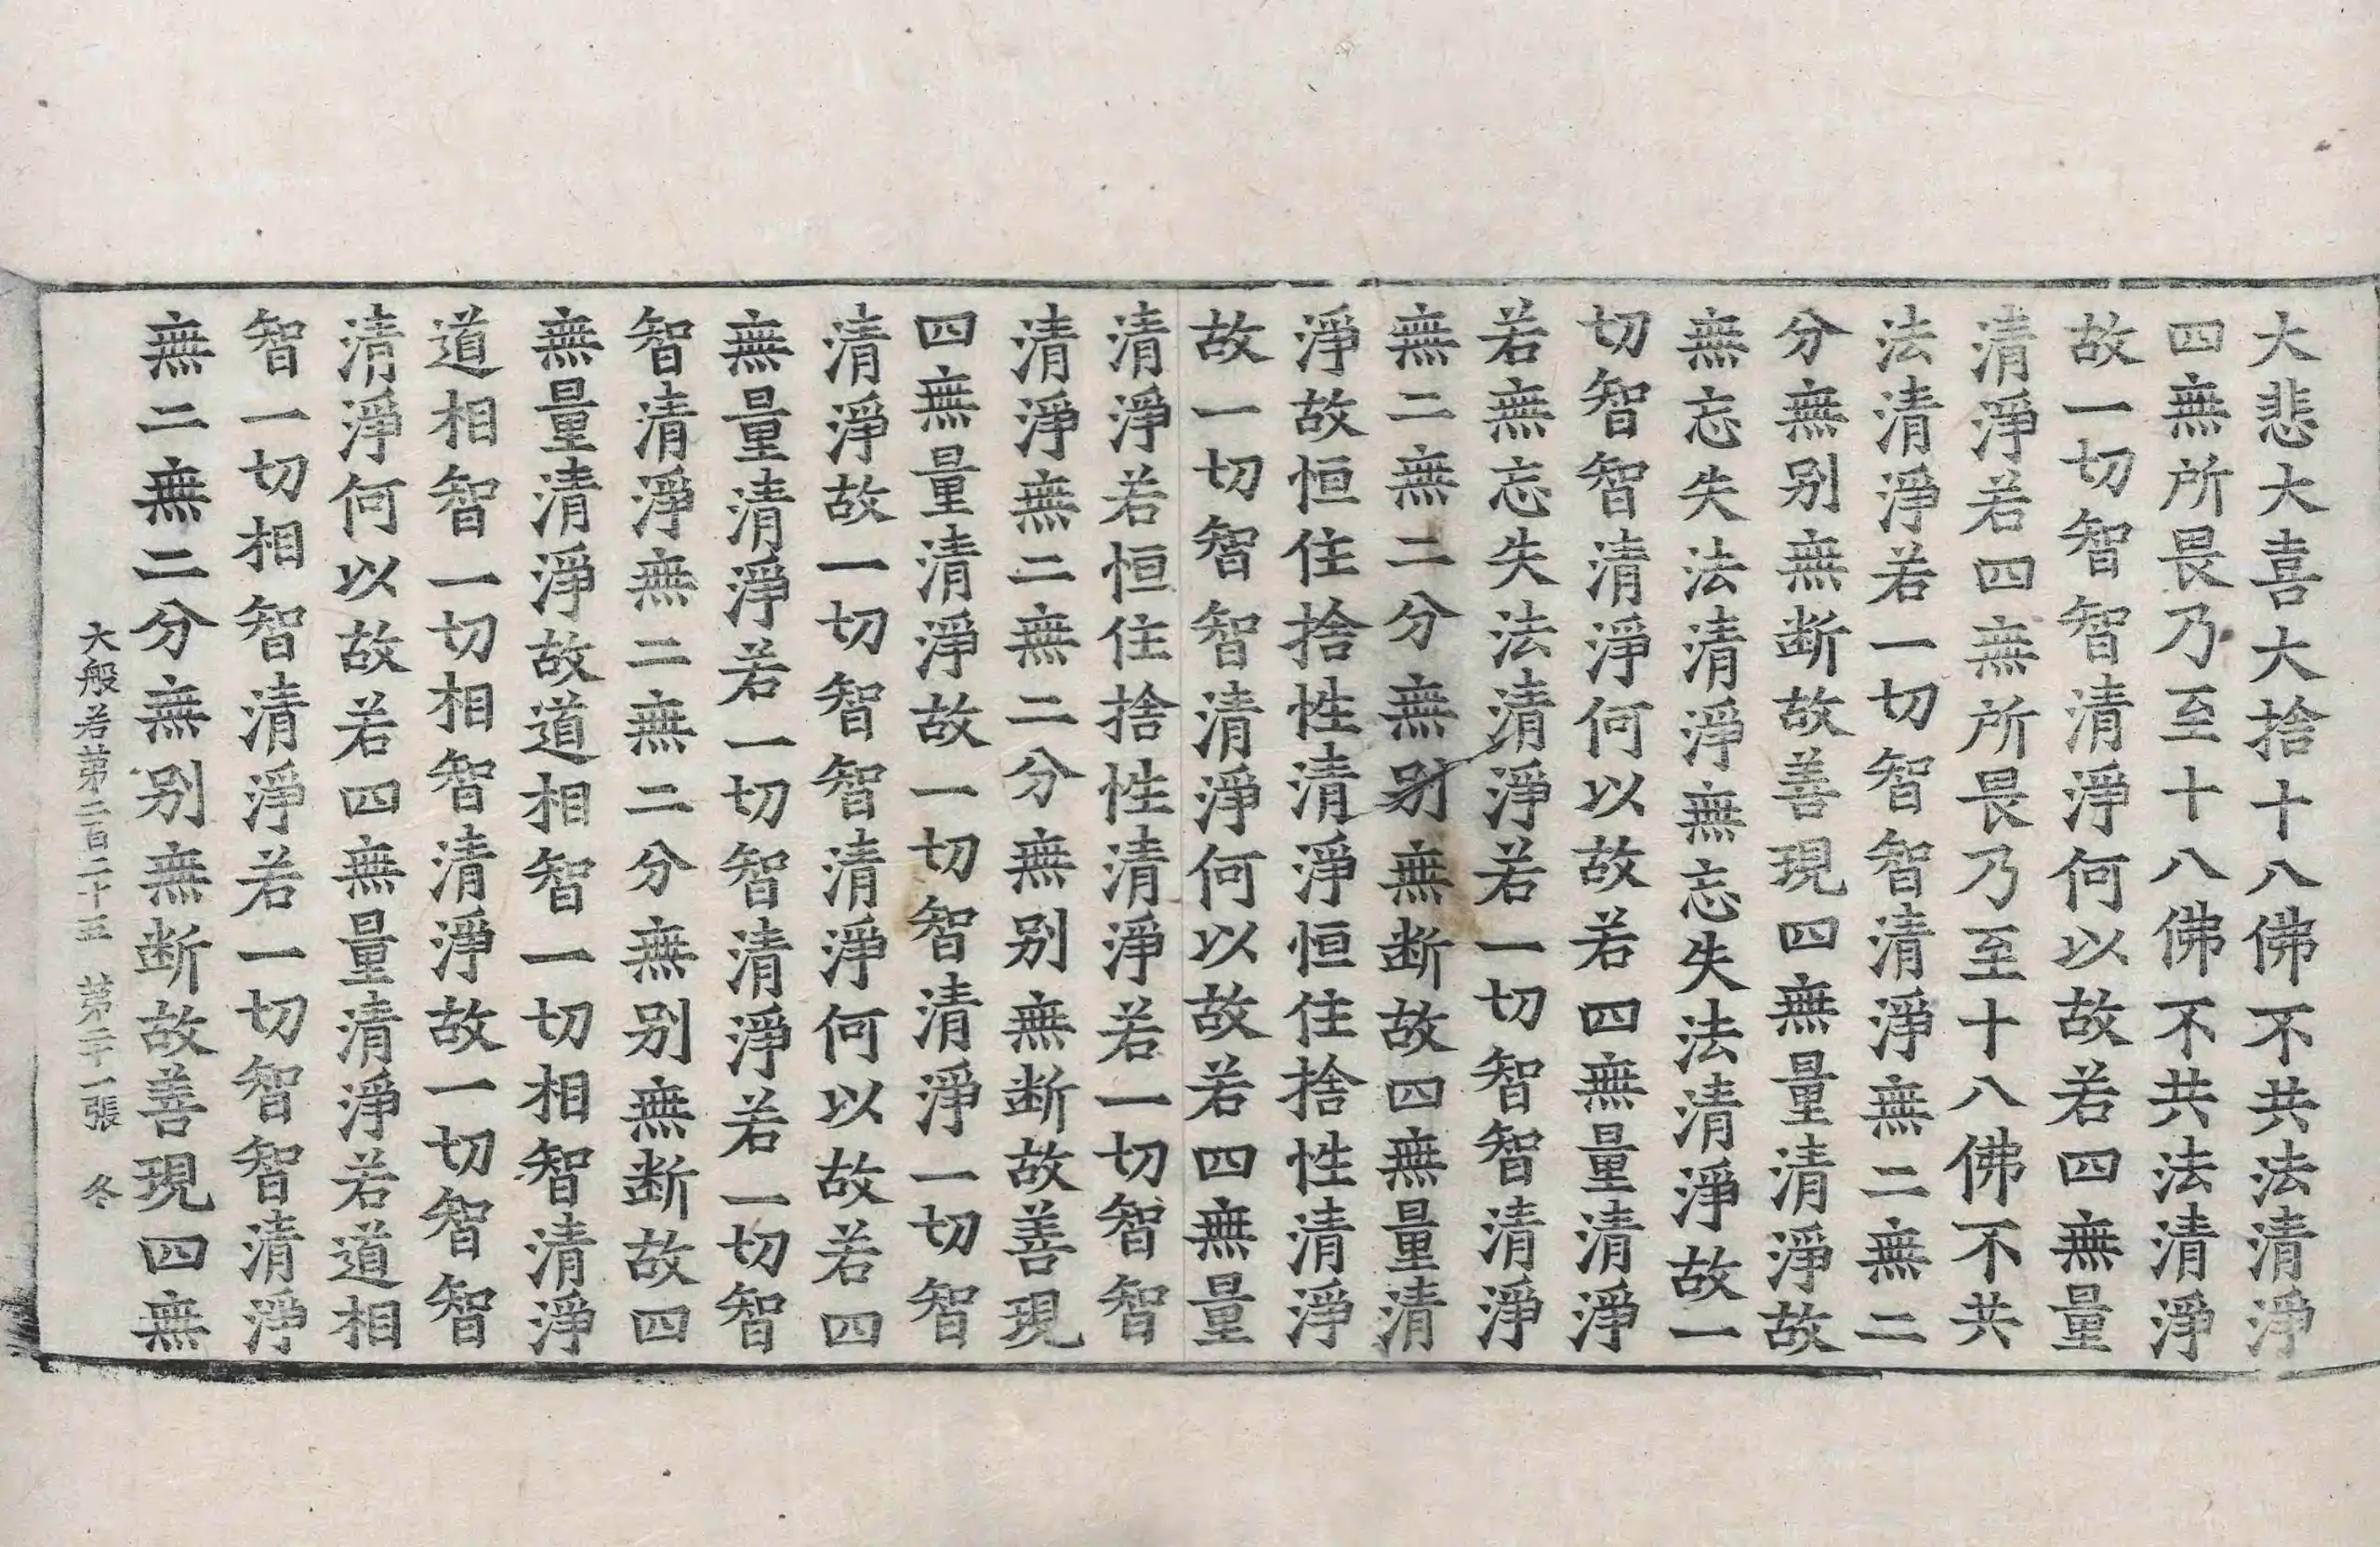 大悲大喜大捨十八佛不共法清淨
四無所畏乃至十八佛不共法清淨
故一切智智清淨何以故若四無量
清淨若四無所畏乃至十八佛不共
法清淨若一切智智清淨無二無二
分無別無断故善現四無量清淨故
無忘失法清淨無忘失法清淨故一
切智智清淨何以故若四無量清淨
若無忘失法清淨若一切智智清淨
無二無二分無別無断故四無量清
淨故恒住捨性清淨恒住捨性清淨
故一切智智清淨何以故若四無量
清淨若恒住捨性清淨若一切智智
清淨無二無二分無別無断故善現
四無量清淨故一切智清淨一切智
清淨故一切智智清淨何以故若四
無量清淨若一切智清淨若一切智
智清淨無二無二分無別無断故四
無量清淨故道相智一切相智清淨
道相智一切相智清淨故一切智智
清淨何以故若四無量清淨若道相
智一切相智清淨若一切智智清淨
無二無二分無別無断故善現四無
大般若苐二百二十五 苐二十一張 冬